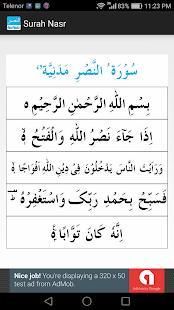 Telenor 82% 11:23 PM
Surah Nasr
سُوْرَةُ النَّصْرِ مَدَنِيَّةٌ
بِسْمِ اللّٰهِ الرَّحْمٰنِ الرَّحِيْمِ ۝
اِذَا جَآءَ نَصْرُ اللّٰهِ وَالْفَتْحُ ۝
وَرَاَيْتَ النَّاسَ يَدْخُلُوْنَ فِىْ دِيْنِ اللّٰهِ اَفْوَاجًا ۝
فَسَبِّحْ بِحَمْدِ رَبِّكَ وَاسْتَغْفِرْهُ ؕ
اِنَّهٗ كَانَ تَوَّابًا ۝
Nice job! You're displaying a 320 x 50
test ad from AdMob.
AdMob by Google